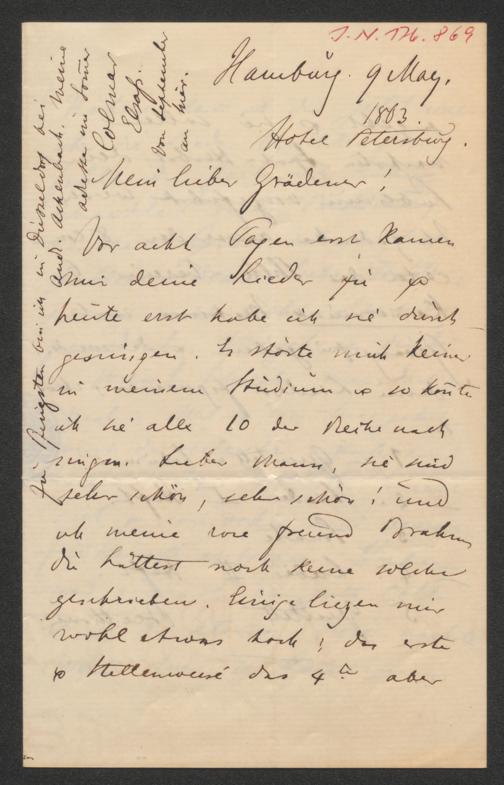 J. N. 176.869
Hamburg. 9 May.
1883.
Hotel Petersburg.
Mein lieber Grädener!
Vor acht Tagen erst kamen
mir deine Lieder zu &
heute erst habe ich sie durch
gesungen. Es störte mich keiner
in meinem Studium & so konte
ich sie alle 10 der Reihe nach
singen. Lieber Mann, sie sind
sehr schön, sehr schön! und
ich meine wie freund Brahms
du hättest noch keine solche
geschrieben. Einige liegen mir
wohl etwas hoch; das erste
& stellenweise das 4te aber
Zu Pfingsten bin ich in Düsseldorf bei
And. Achenbach. Meine
adresse im Somer
Colmar
Elsaß.
von September
an hier.